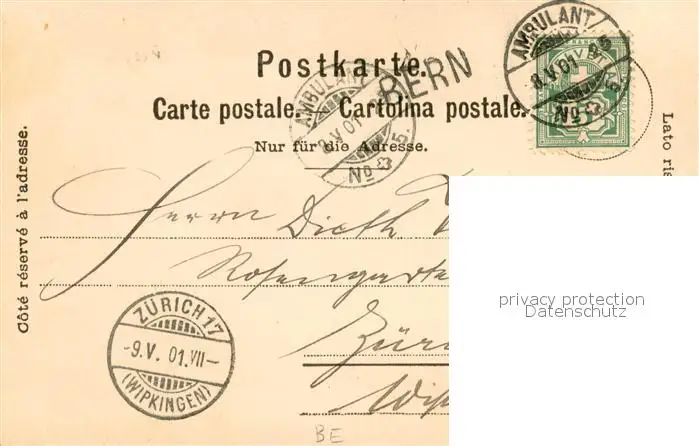 Postkarte.
BERN
Carte postale. Cartolina postale.
Nur für die Adresse.
AMBULANT
8.V.01
No 5
AMBULANT
8.V.01
No
Côté réservé à l'adresse.
Lato ris
Herrn Dieth
Rosengarte
Zür
Wip
ZÜRICH 17
-9.V.01.VII-
(WIPKINGEN)
privacy protection
Datenschutz
BE